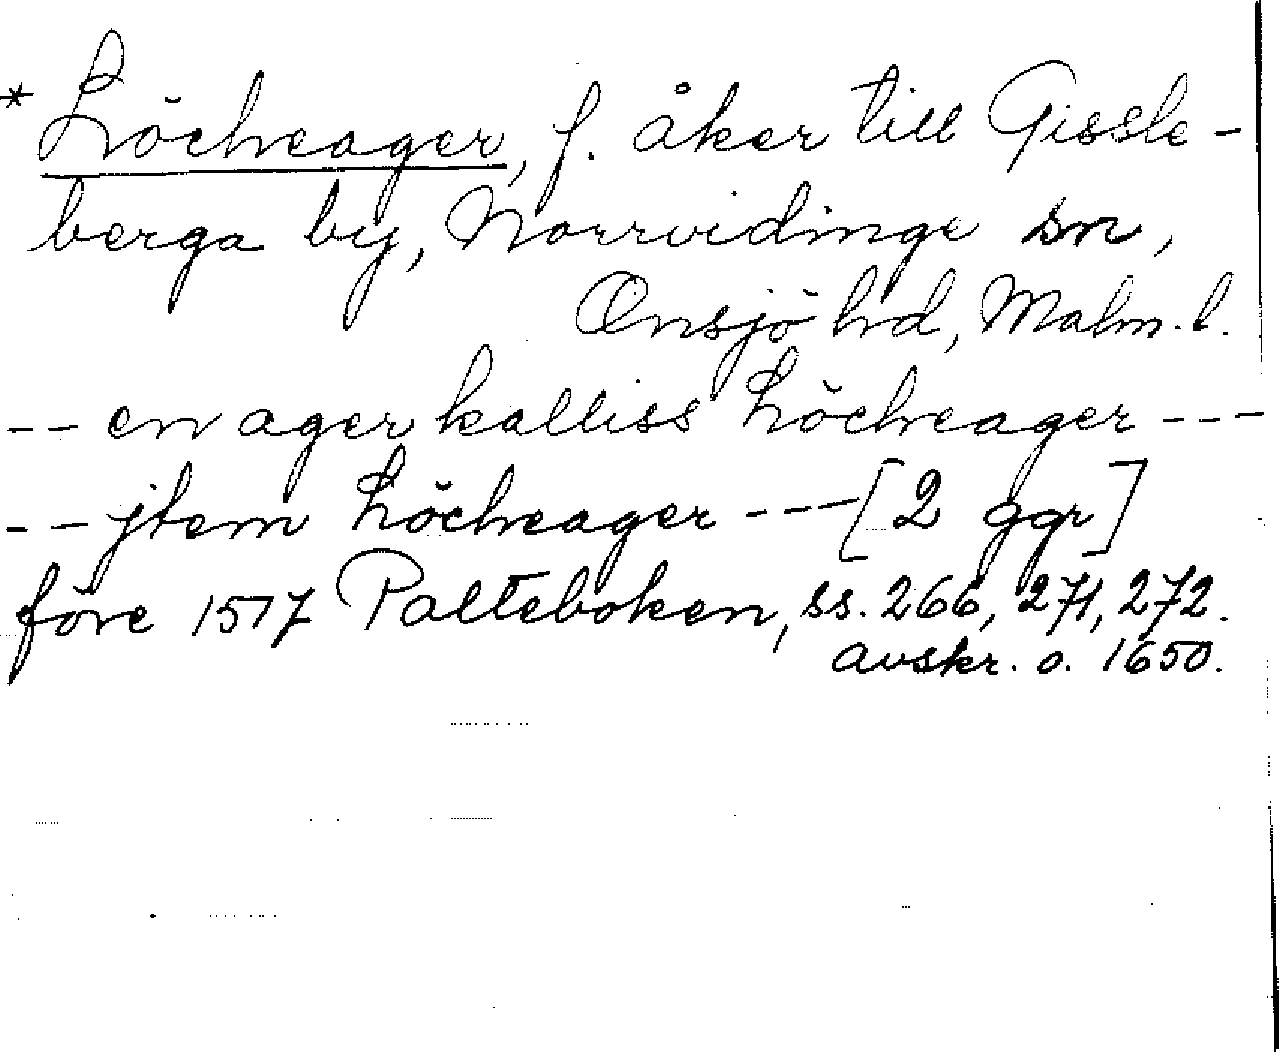 * Löcheager, f. åker till Gissle-
berga by, Norrvidinge sn,
Onsjö hd, Malm. l.
-- en ager kalliss Löcheager ---
-- jtem Löcheager --- [2 ggr]
före 1517 Palteboken, ss. 266, 271, 272.
avskr. o. 1650.